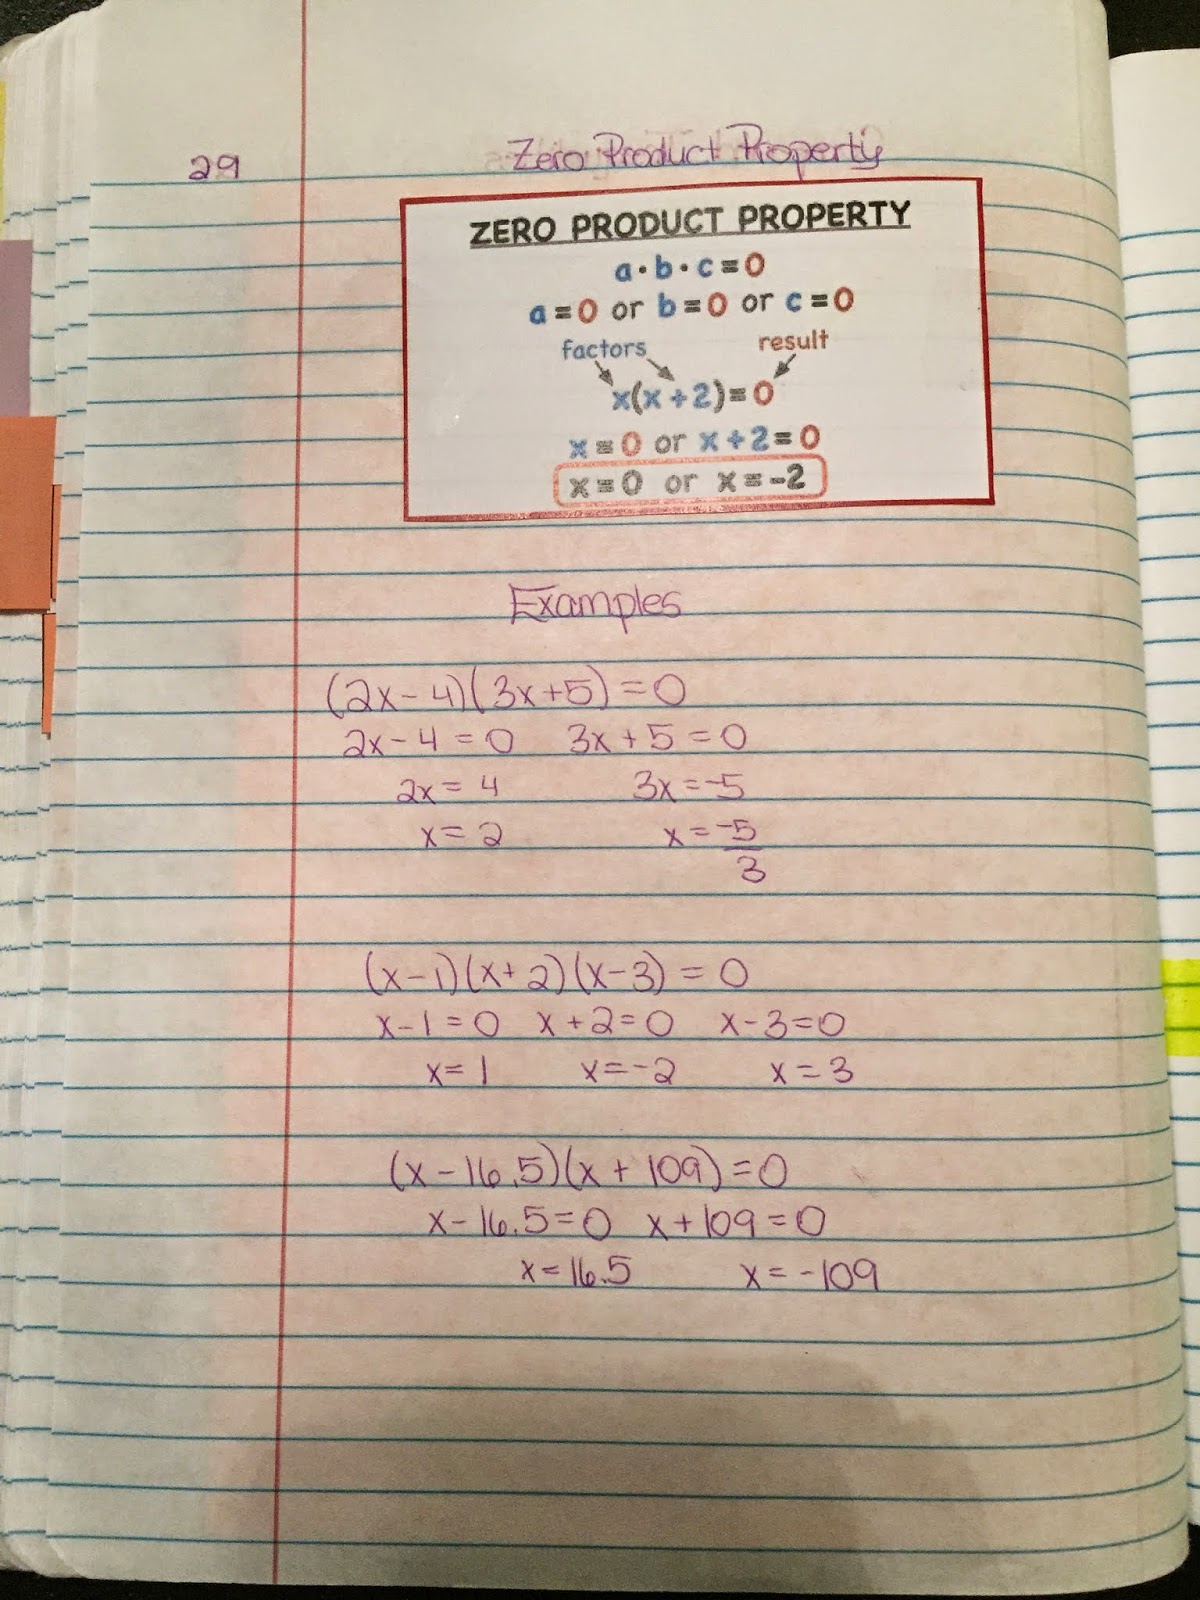 29 Zero Product Property
ZERO PRODUCT PROPERTY
a·b·c=0
a=0 or b=0 or c=0
factors result
x(x+2)=0
x=0 or x+2=0
x=0 or x=-2
Examples
(2x-4)(3x+5)=0
2x-4=0 3x+5=0
2x=4 3x=-5
x=2 x=-5/3
(x-1)(x+2)(x-3)=0
x-1=0 x+2=0 x-3=0
x=1 x=-2 x=3
(x-16.5)(x+109)=0
x-16.5=0 x+109=0
x=16.5 x=-109